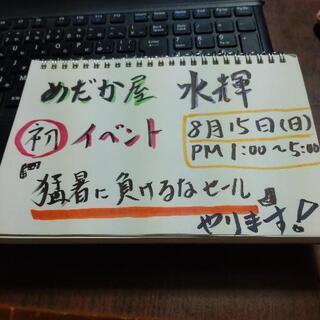 めだか屋 水輝
初 イベント
8月15日(日)
PM 1:00〜5:00
『猛暑に負けるなセール』
やります!